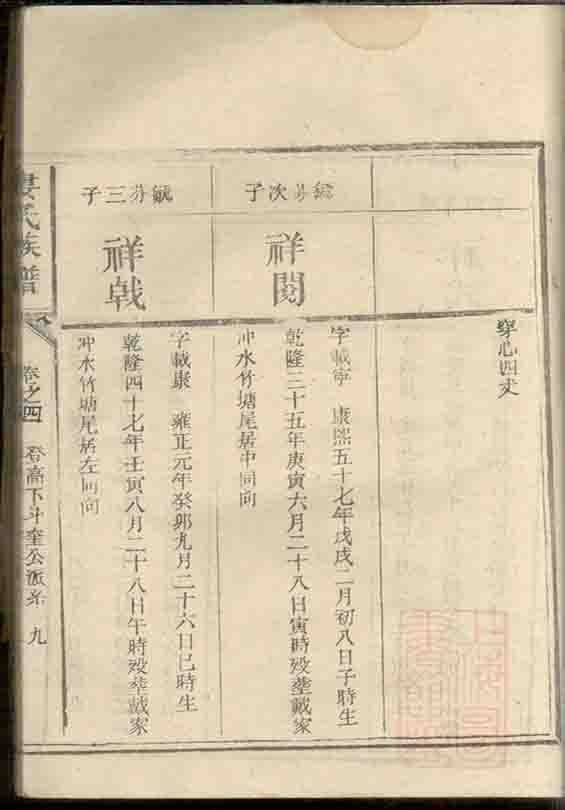 穿心四丈
次子
祥閱
字載寧 康熙五十七年戊戌二月初八日子時生
乾隆三十五年庚寅六月二十八日寅時歿塟戴家
冲水竹塘尾居中同向
毓芬三子
祥戟
字載康 雍正元年癸卯九月二十六日巳時生
乾隆四十七年壬寅八月二十八日午時歿塟戴家
冲水竹塘尾居左同向
婁氏族譜
卷之四 登高下斗奎公派系 九